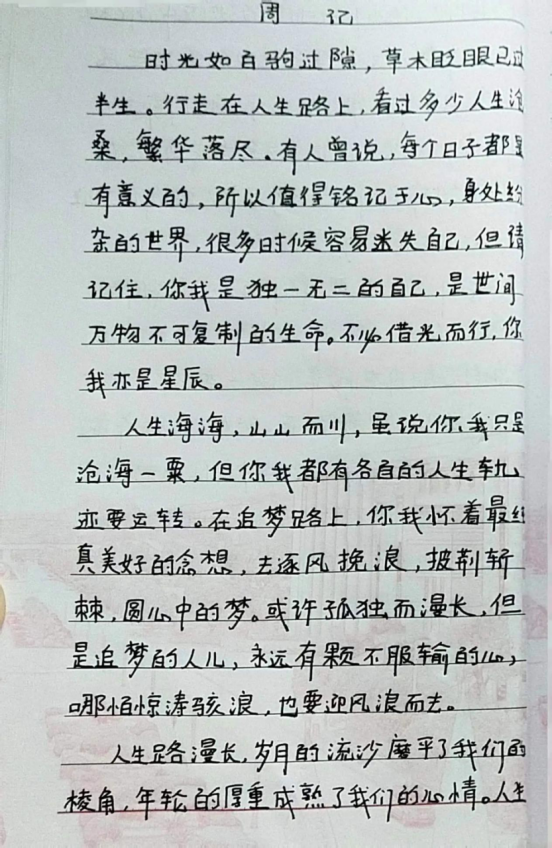 周 记
时光如白驹过隙，草木眨眼已过
半生。行走在人生路上，看过多少人生沧
桑，繁华落尽。有人曾说，每个日子都是
有意义的，所以值得铭记于心，身处纷
杂的世界，很多时候容易迷失自己，但请
记住，你我是独一无二的自己，是世间
万物不可复制的生命。不必借光而行，你
我亦是星辰。
人生海海，山山而川，虽说你我只是
沧海一粟，但你我都有各自的人生轨
亦要运转。在追梦路上，你我怀着最纯
真美好的念想，去逐风挽浪，披荆斩
棘，圆心中的梦。或许孤独而漫长，但
是追梦的人儿，永远有颗不服输的心，
哪怕惊涛骇浪，也要迎风浪而去。
人生路漫长，岁月的流沙磨平了我们的
棱角，年轮的厚重成熟了我们的心情。人生